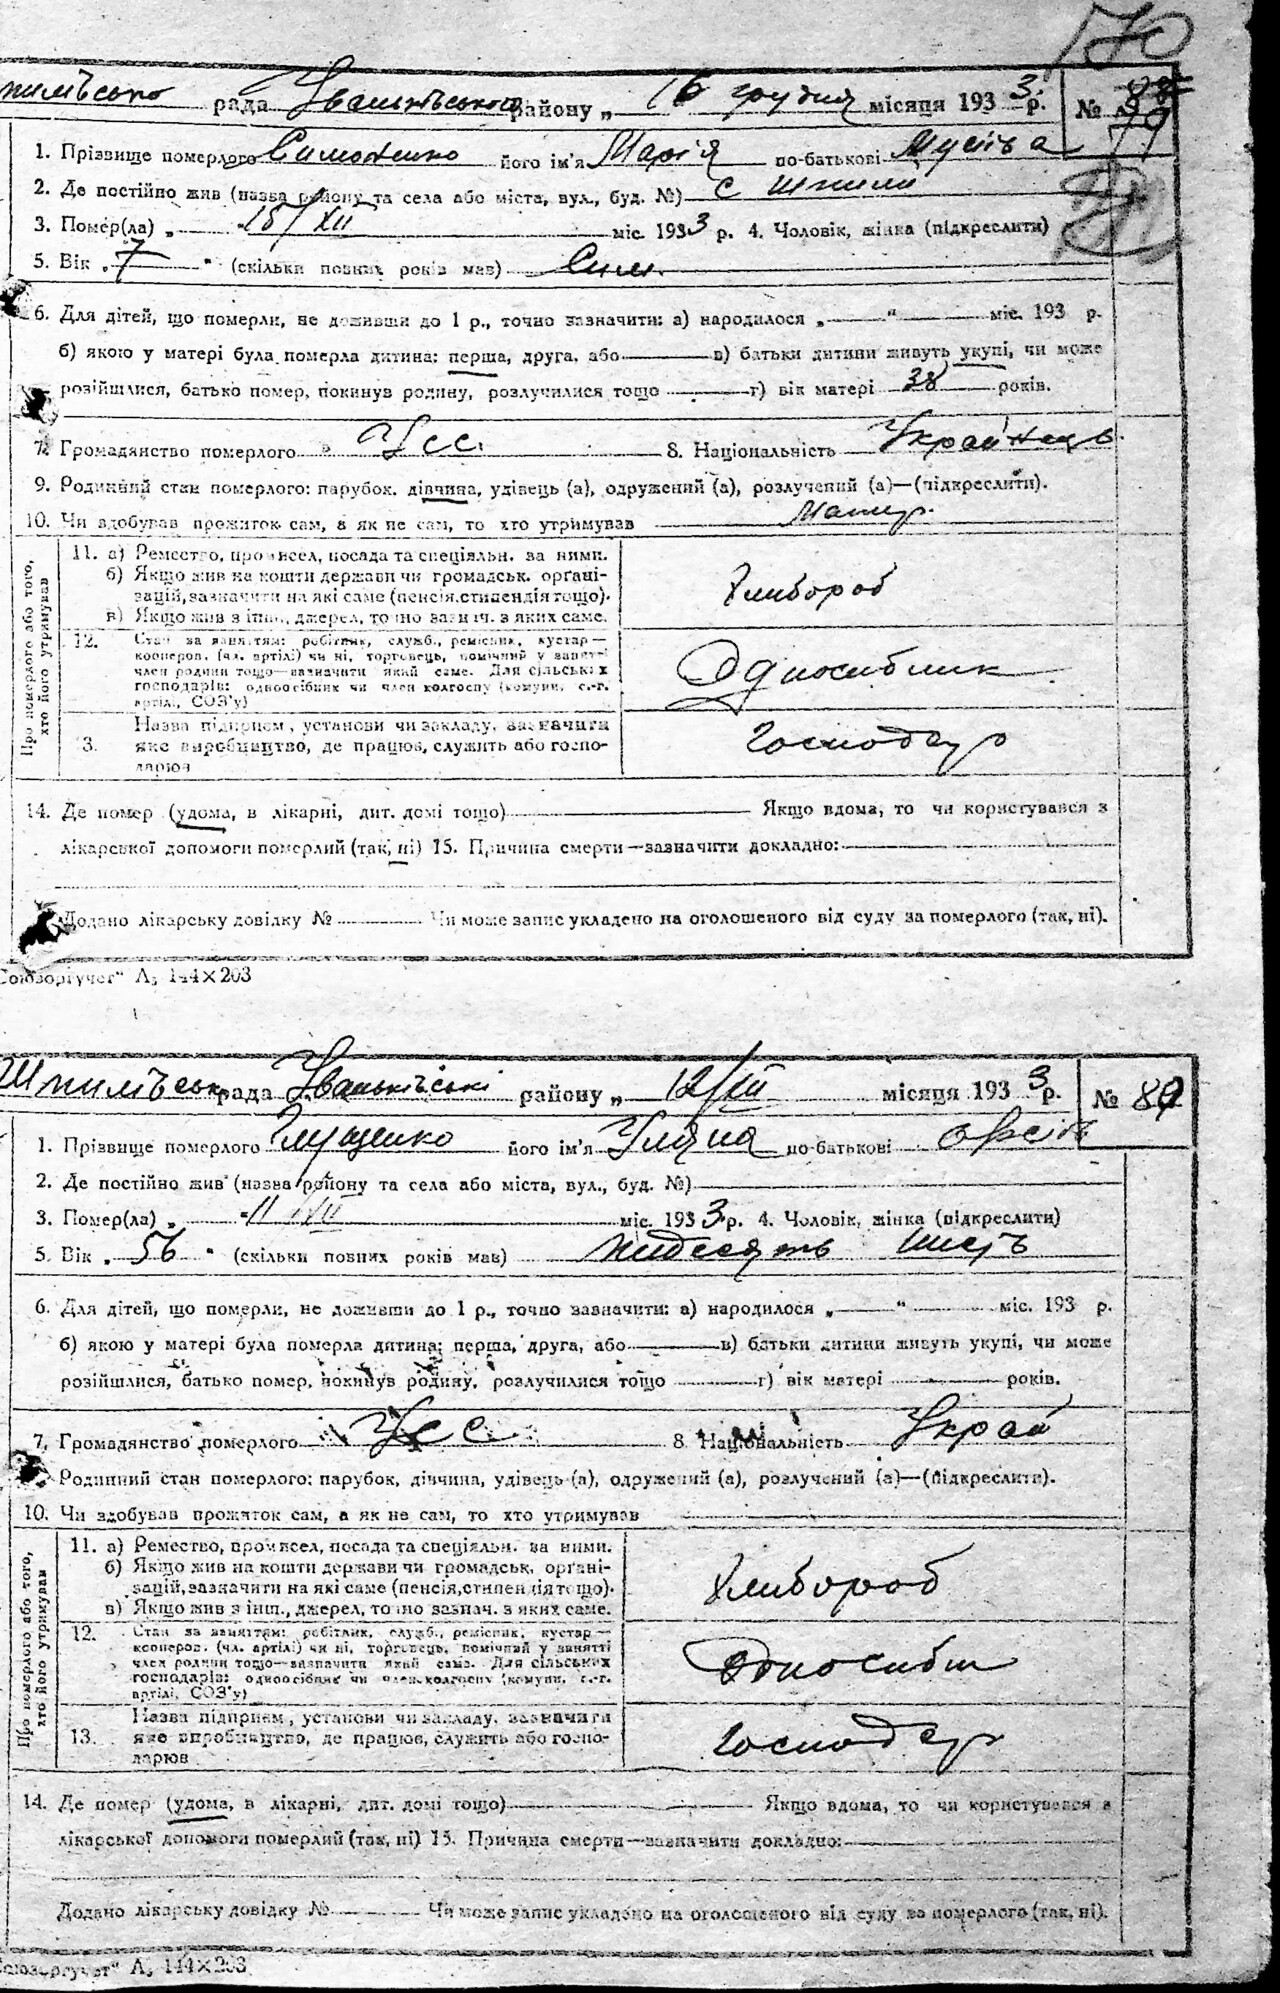 170
рада Іваньківського району „ 16 грудня місяця 1933 р. № 79
1. Прізвище померлого Симоненко його ім'я Марія по-батькові Мусіївна
2. Де постійно жив (назва району та села або міста, вул., буд. №) с Шпилі
3. Помер(ла) „ 15/XII міс. 1933 р. 4. Чоловік, жінка (підкреслити)
5. Вік „ 7 " (скільки повних років мав) Сим.
6. Для дітей, що померли, не доживши до 1 р., точно зазначити: а) народилося „ " міс. 193 р.
б) якою у матері була померла дитина: перша, друга, або в) батьки дитини живуть укупі, чи може
розійшлися, батько помер, покинув родину, розлучилися тощо г) вік матері 38 років.
7. Громадянство померлого „ УСС. 8. Національність Українець
9. Родинний стан померлого: парубок, дівчина, удівець (а), одружений (а), розлучений (а)—(підкреслити).
10. Чи здобував прожиток сам, а як не сам, то хто утримував
Про померлого або того, хто його утримував
11. а) Ремество, промисел, посада та спеціяльн. за ними.
б) Якщо жив на кошти держави чи громадськ. органі-
зацій, зазначити на які саме (пенсія, стипендія тощо).
в) Якщо жив з інш., джерел, точно зазнач. з яких саме.
Хлибороб
12. Стан за заняттям: робітник, служб., ремісник, кустар—
кооперов. (чл. артілі) чи ні, торговець, помічний у занятті
член родини тощо—зазначити який саме. Для сільських
господарів: одноосібник чи член колгоспу (комуни, с.-г.
артілі, СОЗ'у)
Односиблик
13. Назва підприєм, установи чи закладу, зазначити
яке виробництво, де працює, служить або госпо-
дарює
Господар
14. Де помер (удома, в лікарні, дит. домі тощо) Якщо вдома, то чи користувався з
лікарської допомоги померлий (так, ні) 15. Причина смерти—зазначити докладно:
Додано лікарську довідку № Чи може запис укладено на оголошеного від суду за померлого (так, ні).
Союзоргучет" А5 144×203
Шпилівська рада Іваньківські району „ 12/XII місяця 1933 р. №
1. Прізвище померлого Глущенко його ім'я Уляна по-батькові
2. Де постійно жив (назва району та села або міста, вул., буд. №)
3. Помер(ла) „ 11/XII міс. 1933 р. 4. Чоловік, жінка (підкреслити)
5. Вік „ 56 " (скільки повних років мав) пидесять шисть
6. Для дітей, що померли, не доживши до 1 р., точно зазначити: а) народилося „ " міс. 193 р.
б) якою у матері була померла дитина: перша, друга, або в) батьки дитини живуть укупі, чи може
розійшлися, батько помер, покинув родину, розлучилися тощо г) вік матері років.
7. Громадянство померлого УСС 8. Національність Украй
Родинний стан померлого: парубок, дівчина, удівець (а), одружений (а), розлучений (а)—(підкреслити).
10. Чи здобував прожиток сам, а як не сам, то хто утримував
Про померлого або того, хто його утримував
11. а) Ремество, промисел, посада та спеціяльн. за ними.
б) Якщо жив на кошти держави чи громадськ. органі-
зацій, зазначити на які саме (пенсія, стипендія тощо).
в) Якщо жив з інш., джерел, точно зазнач. з яких саме.
Хлибороб
12. Стан за заняттям: робітник, служб., ремісник, кустар—
кооперов. (чл. артілі) чи ні, торговець, помічний у занятті
член родини тощо—зазначити який саме. Для сільських
господарів: одноосібник чи член колгоспу (комуни, с.-г.
артілі, СОЗ'у)
13. Назва підприєм, установи чи закладу, зазначити
яке виробництво, де працює, служить або госпо-
дарює
Господар
14. Де помер (удома, в лікарні, дит. домі тощо) Якщо вдома, то чи користувався з
лікарської допомоги померлий (так, ні) 15. Причина смерти—зазначити докладно:
Додано лікарську довідку № Чи може запис укладено на оголошеного від суду за померлого (так, ні).
Союзоргучет" А5 144×203